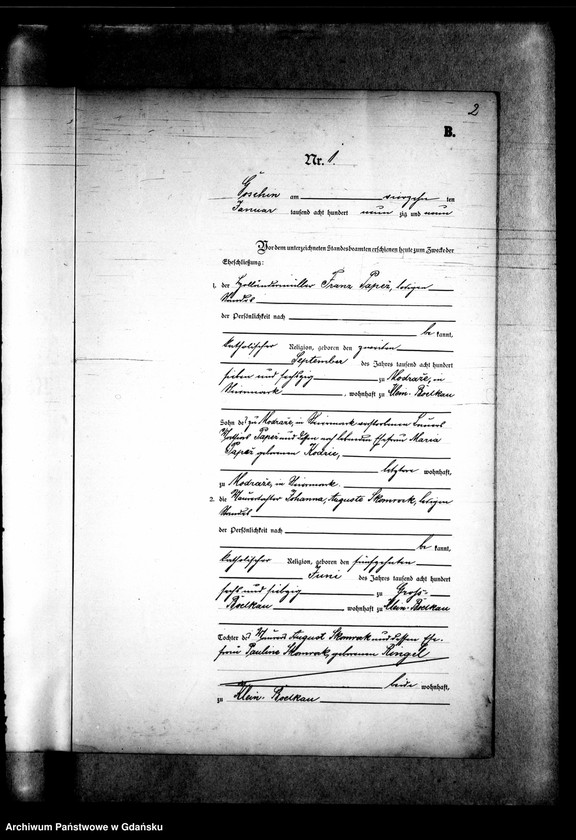 2
B.
Nr. 1.
Goschin am vierzehn ten
Januar tausend acht hundert neun zig und neun
Vor dem unterzeichneten Standesbeamten erschienen heute zum Zwecke der
Eheschließung:
1. der Holländermüller Franz Papež, ledigen
Standes
der Persönlichkeit nach
be kannt,
katholischer Religion, geboren den zweiten
September des Jahres tausend acht hundert
sieben und sechszig zu Modraže, in
Steiermark, wohnhaft zu Klein-Boelkau
Sohn des zu Modraže, in Steiermark verstorbenen
Papež und dessen noch lebenden Ehefrau Maria
Papež geborenen
letztere wohnhaft,
zu Modraže, in Steiermark
2. die Johanna, Auguste Skomrok, ledigen
Standes
der Persönlichkeit nach
be kannt,
katholischer Religion, geboren den fünfzehnten
Juni des Jahres tausend acht hundert
sechs und siebzig zu Groß-
Boelkau wohnhaft zu Klein-Boelkau
Tochter des August Skomrok und dessen Ehe-
frau Pauline Skomrok, geborenen Ringel
beide wohnhaft,
zu Klein-Boelkau
Archiwum Państwowe w Gdańsku